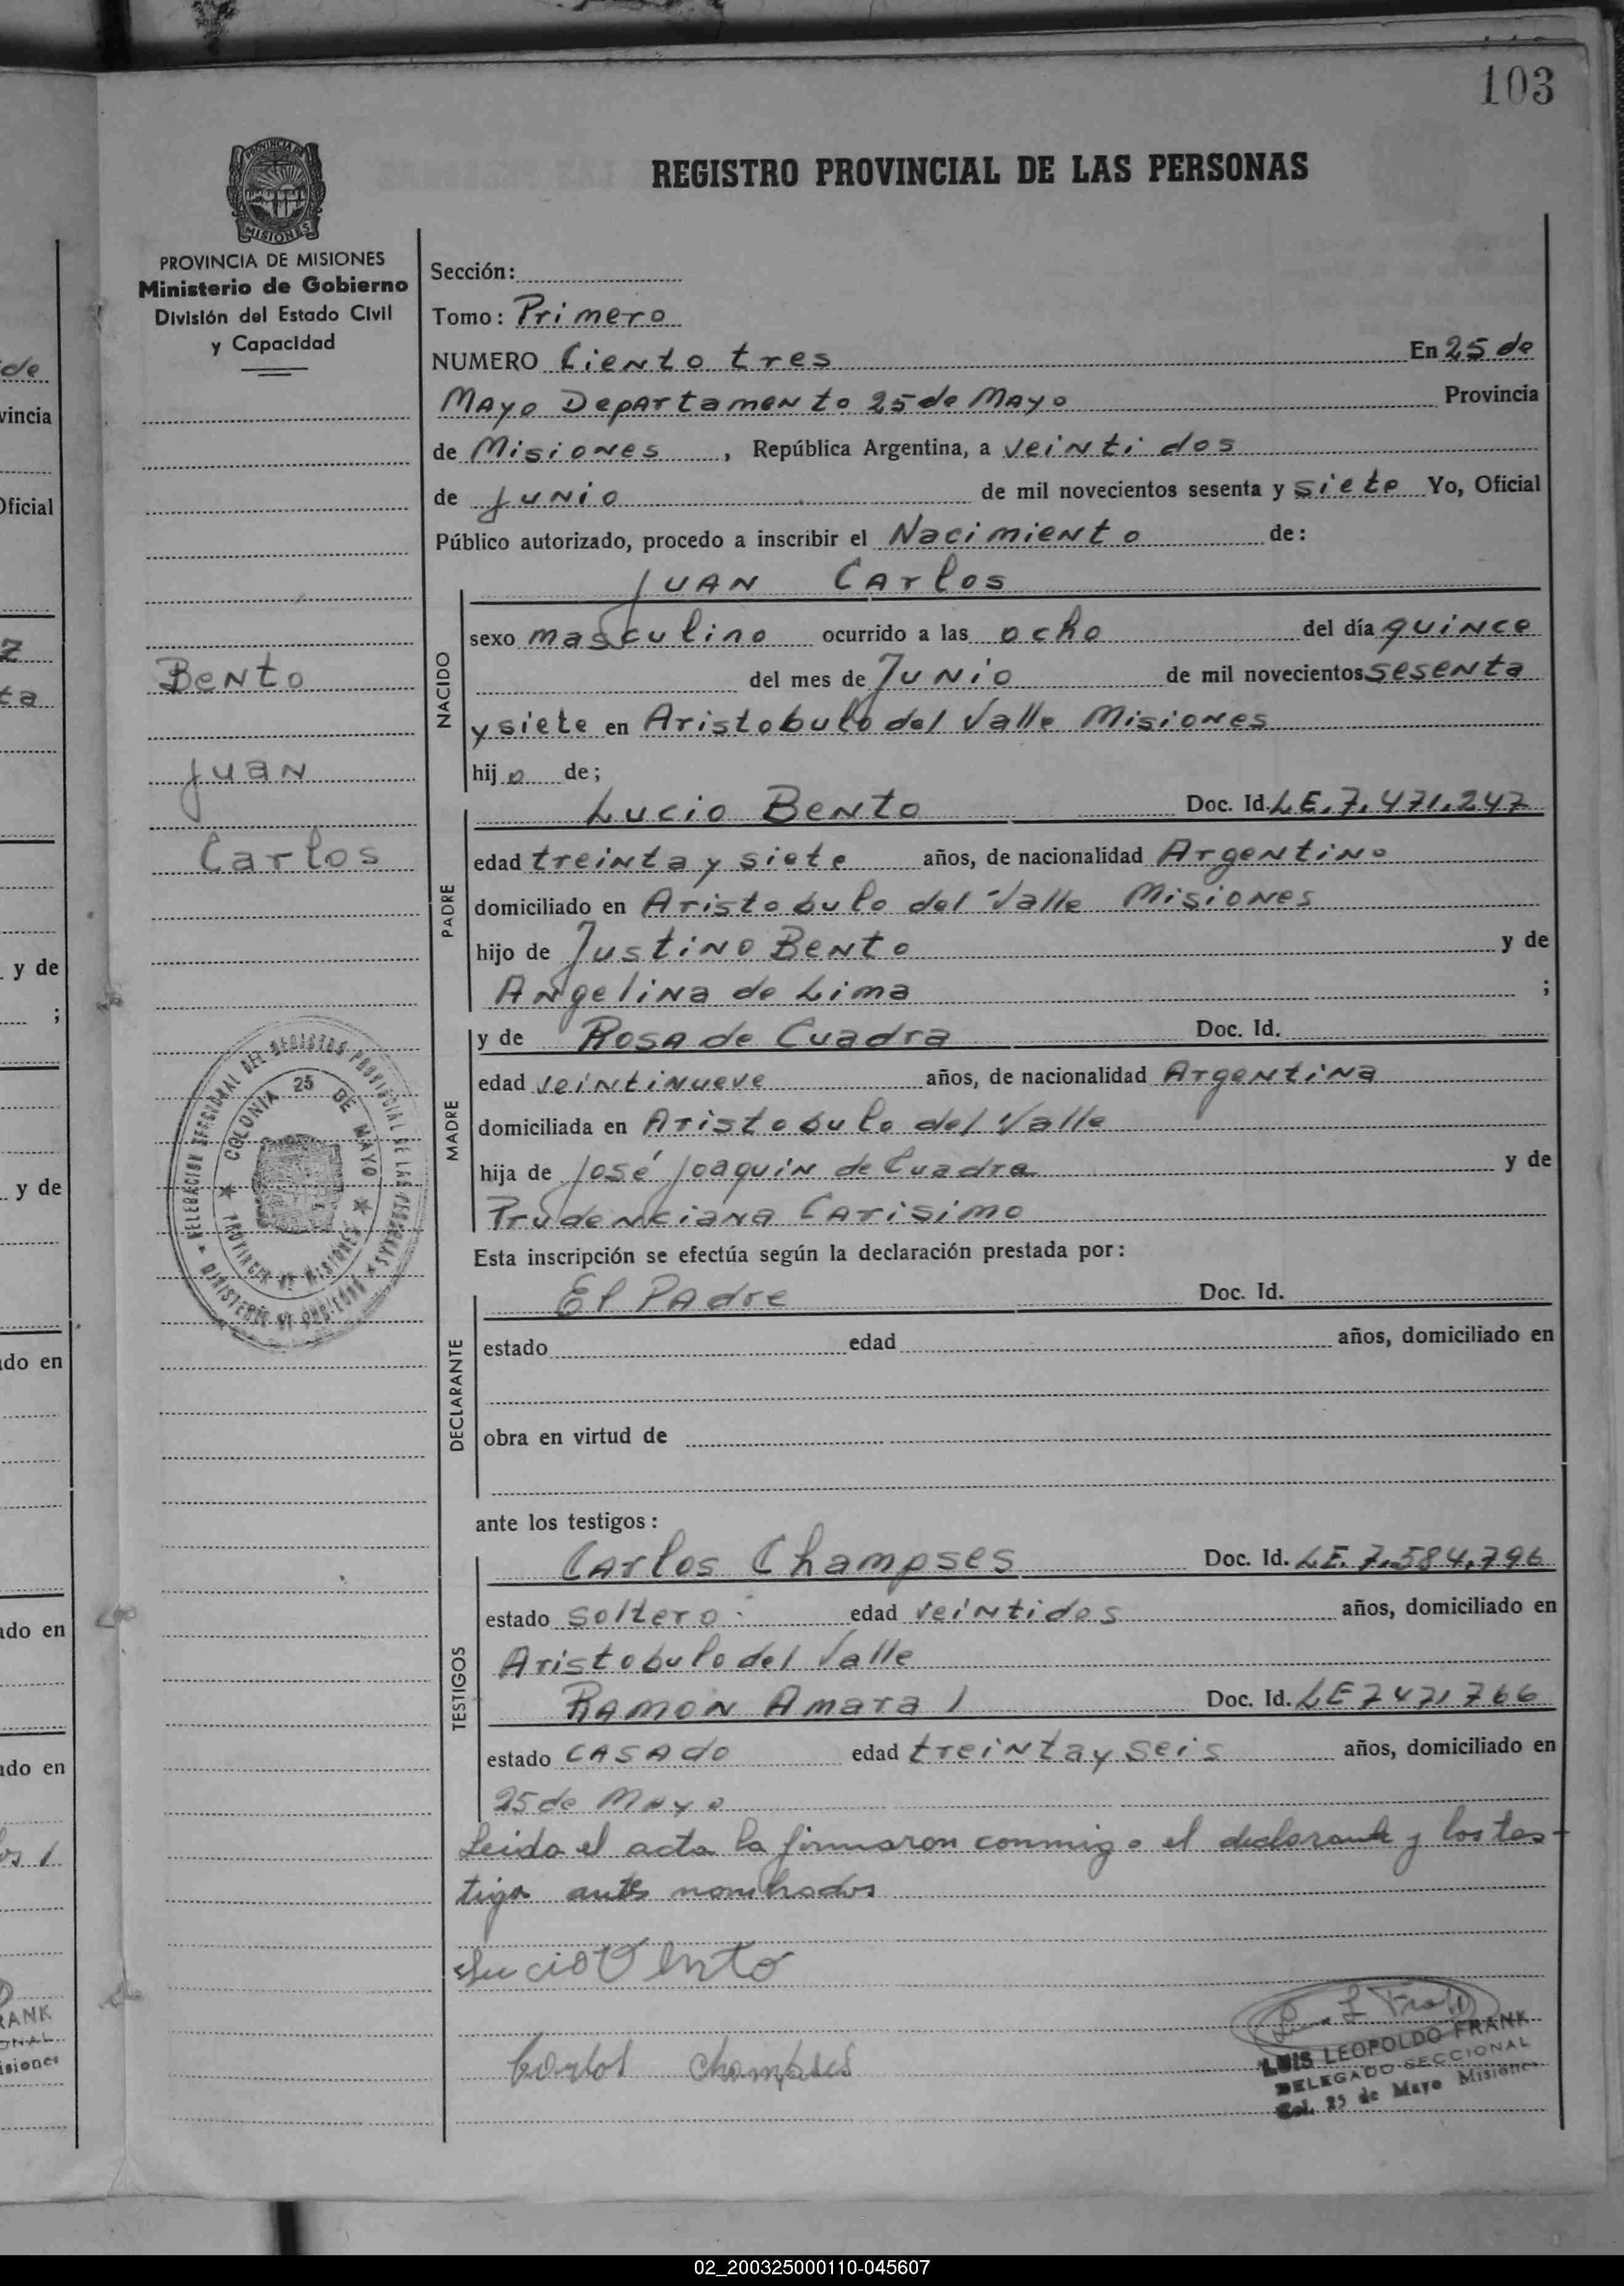 103
REGISTRO PROVINCIAL DE LAS PERSONAS
PROVINCIA DE MISIONES
MISIONES
PROVINCIA DE MISIONES
Ministerio de Gobierno
División del Estado Civil
y Capacidad
Bento
Juan
Carlos
DELEGACION SECCIONAL DEL REGISTRO PROVINCIAL DE LAS PERSONAS
MINISTERIO DE GOBIERNO
COLONIA 25 DE MAYO
PROVINCIA DE MISIONES
Sección:
Tomo: Primero
NUMERO Ciento tres En 25 de
Mayo Departamento 25 de Mayo Provincia
de Misiones , República Argentina, a veinti dos
de Junio de mil novecientos sesenta y siete Yo, Oficial
Público autorizado, procedo a inscribir el Nacimiento de:
JUAN CArlos
NACIDO
sexo masculino ocurrido a las ocho del día quince
del mes de Junio de mil novecientos sesenta
y siete en Aristobulo del Valle Misiones
hijo de;
PADRE
Lucio Bento Doc. Id. LE. 7.471.247
edad treinta y siete años, de nacionalidad Argentino
domiciliado en Aristobulo del Valle Misiones
hijo de Justino Bento y de
Angelina de Lima ;
MADRE
y de Rosa de Cuadra Doc. Id.
edad veintinueve años, de nacionalidad Argentina
domiciliada en Aristobulo del Valle
hija de José Joaquin de Cuadra y de
Prudenciana Carisimo
Esta inscripción se efectúa según la declaración prestada por:
DECLARANTE
El Padre Doc. Id.
estado edad años, domiciliado en
obra en virtud de
ante los testigos:
TESTIGOS
Carlos Champses Doc. Id. LE. 7.584.796
estado soltero edad veintidos años, domiciliado en
Aristobulo del Valle
Ramon Amaral Doc. Id. LE 7471766
estado casado edad treinta y seis años, domiciliado en
25 de Mayo
Leida el acta la firmaron conmigo el declarante y los tes-
tigos antes nombrados
Lucio Bento
Carlos Champses
LUIS LEOPOLDO FRANK
DELEGADO SECCIONAL
Col. 25 de Mayo Misiones
02_200325000110-045607